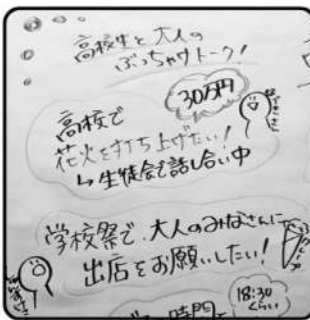 高校生と大人の
ぶっちゃけトーク!
30万円
高校で
花火を打ち上げたい!
↳生徒会で話し合い中
学校祭で、大人のみなさんに
出店をお願いしたい!
時間
18:30
くらい